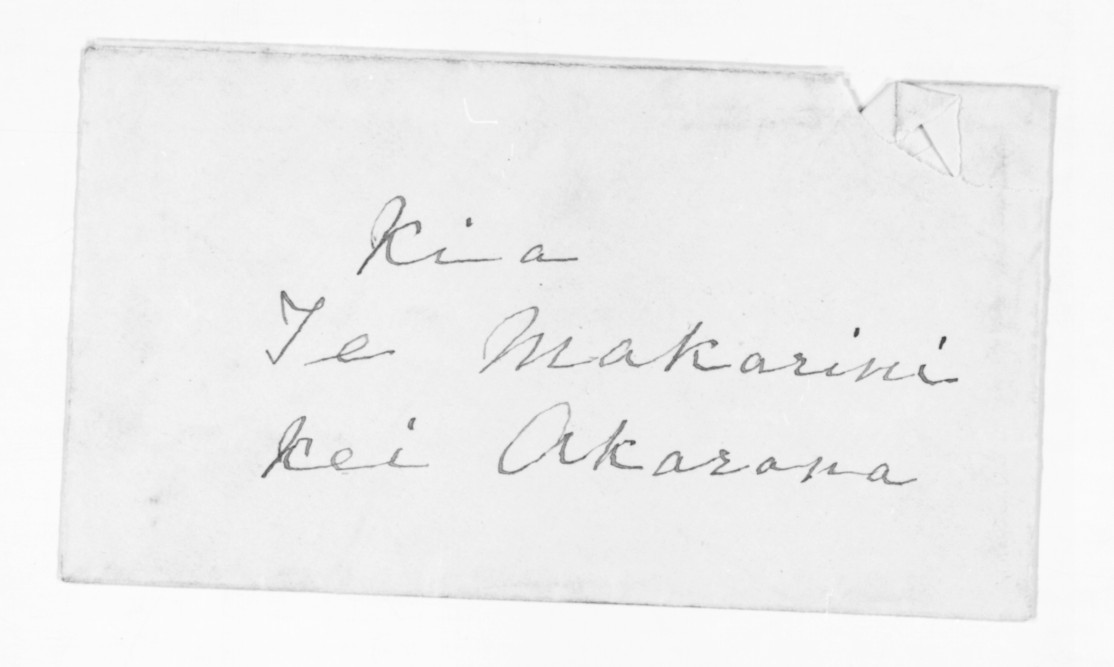 Kia
Te Makarini
kei Akarana